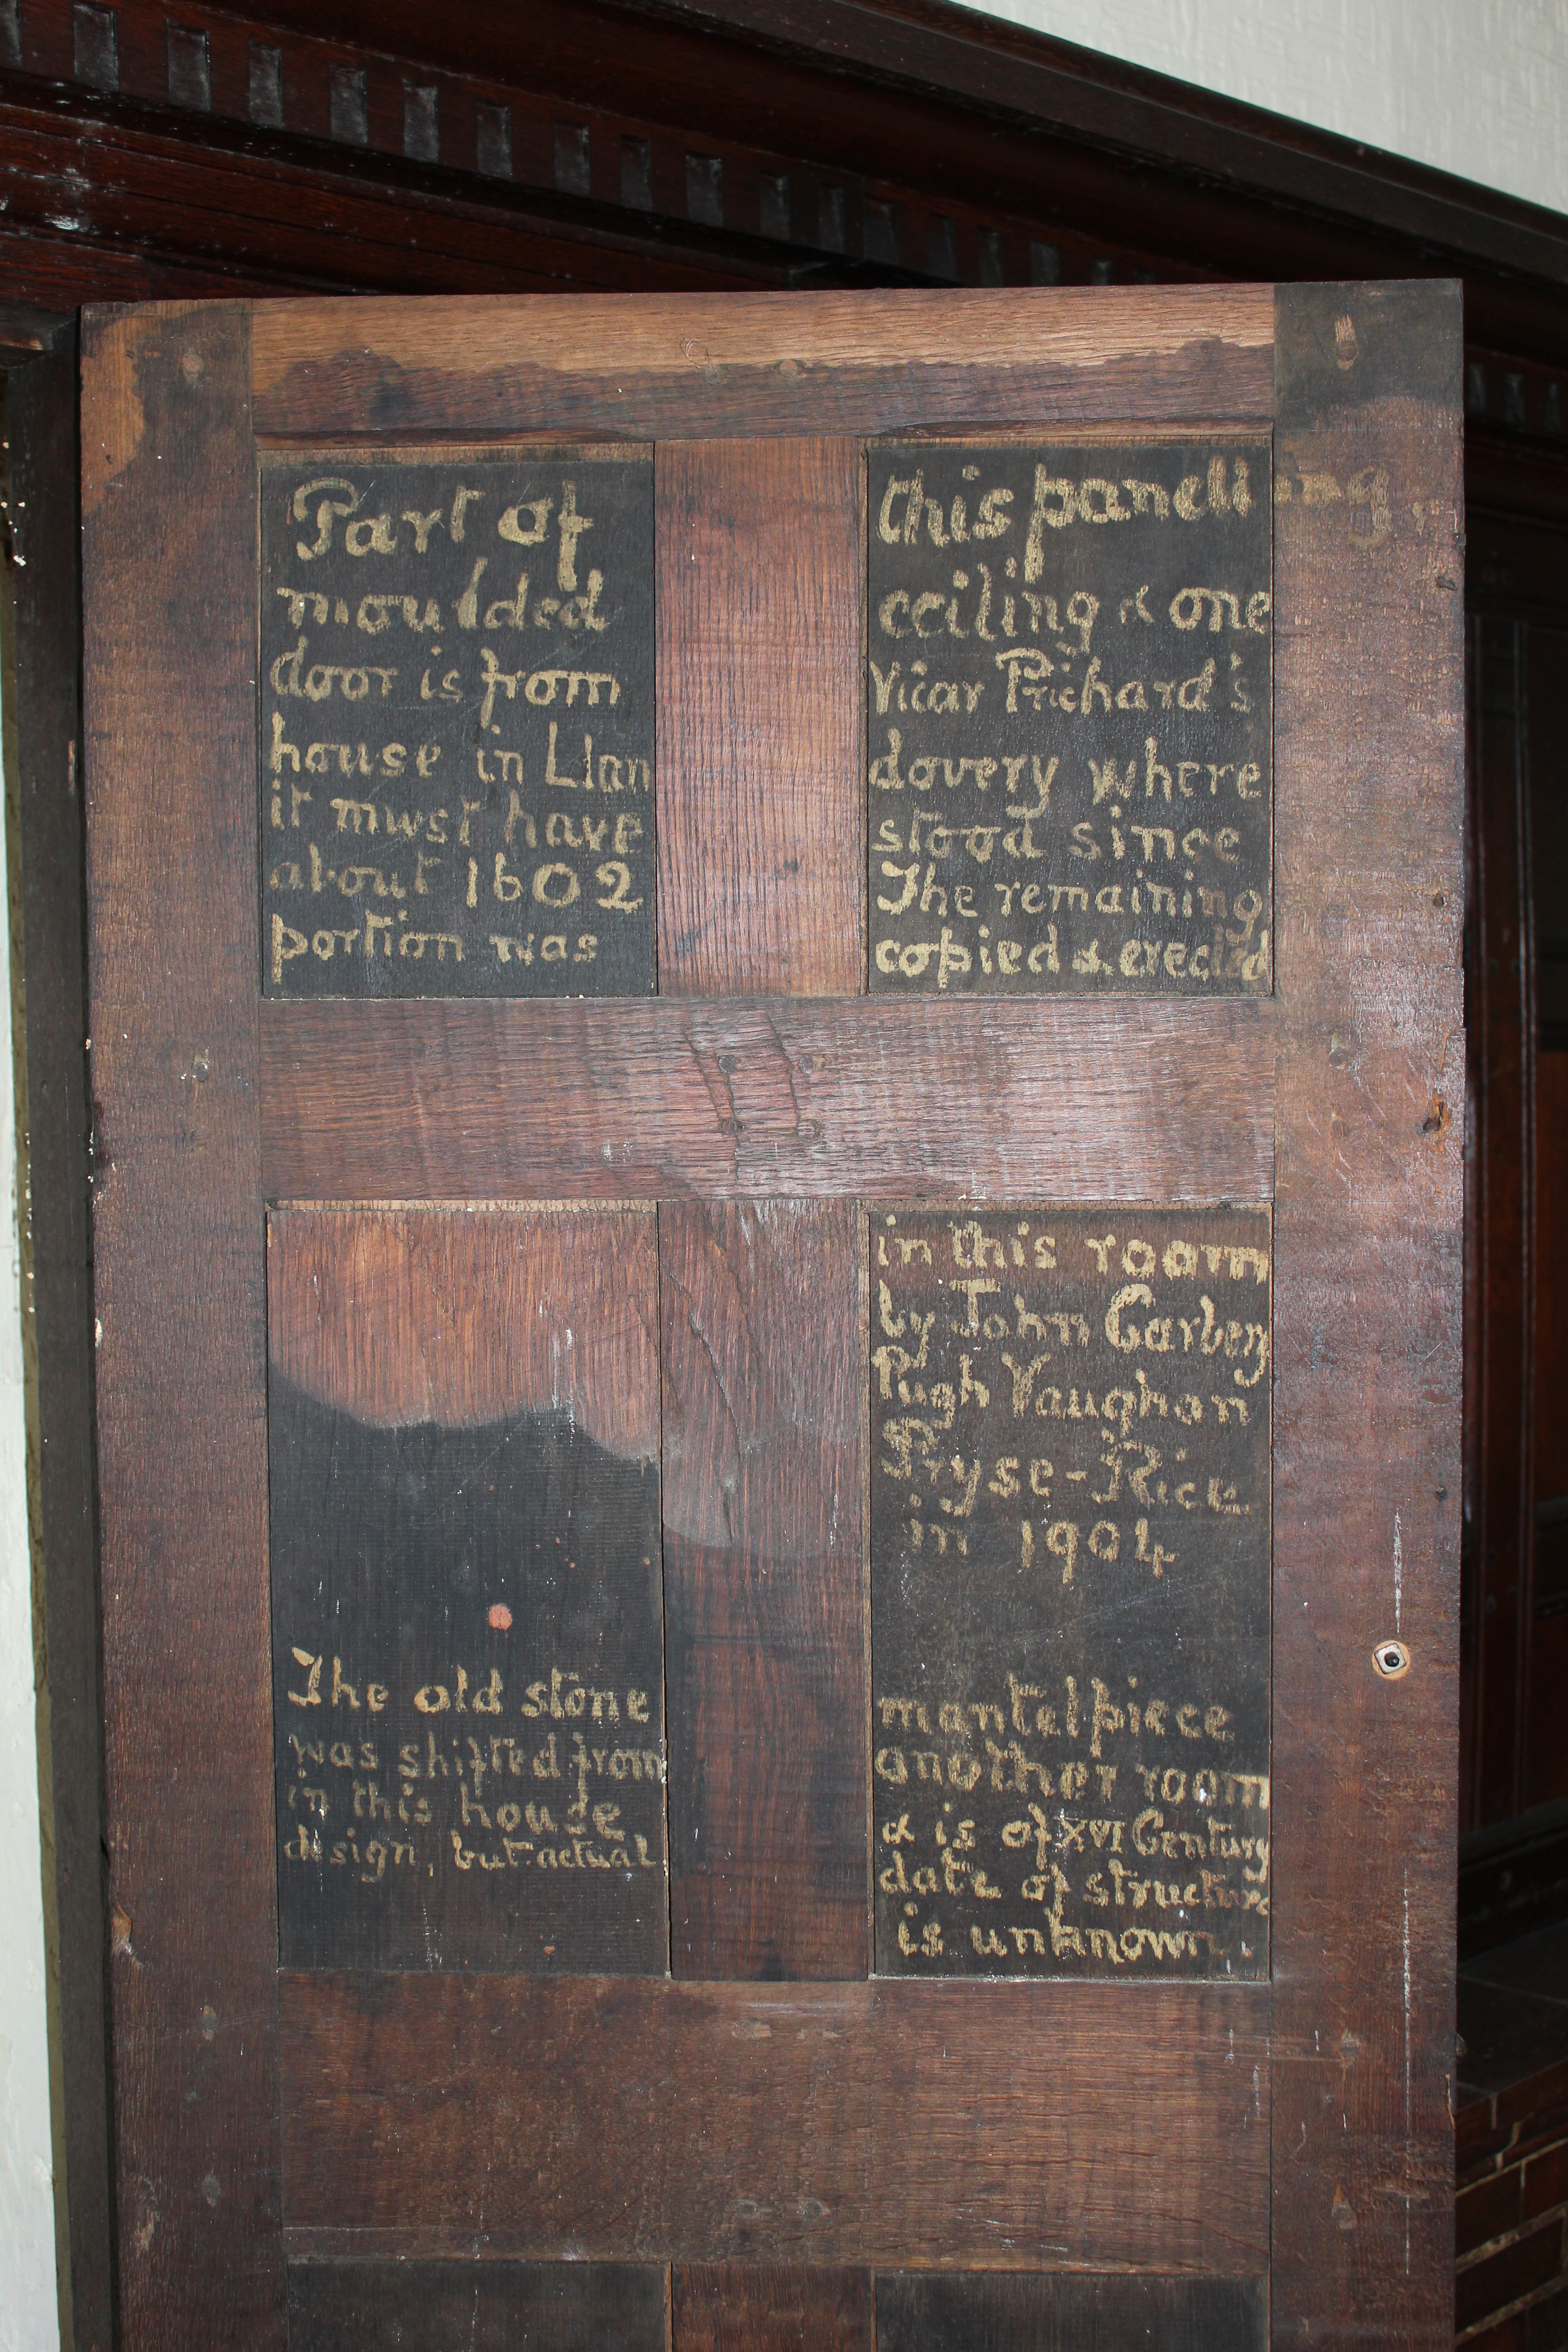 Part of this panelling,
moulded ceiling & one
door is from Vicar Prichard's
house in Llandovery where
it must have stood since
about 1602 The remaining
portion was copied & erected
in this room
by John Carbery
Pugh Vaughan
Pryse-Rice
in 1904
The old stone mantelpiece
was shifted from another room
in this house & is of XVI Century
design, but actual date of structure
is unknown.